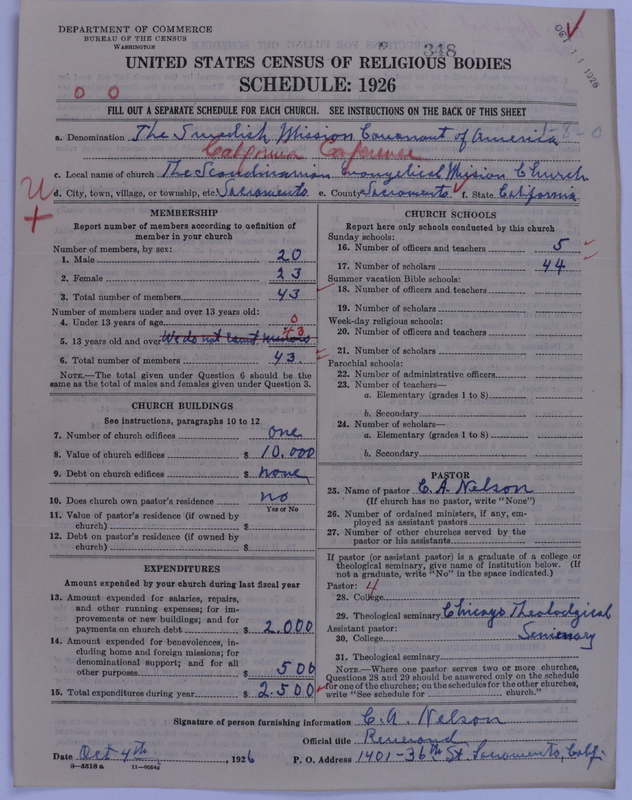 DEPARTMENT OF COMMERCE
BUREAU OF THE CENSUS
WASHINGTON
348
OCT 11 1926
UNITED STATES CENSUS OF RELIGIOUS BODIES
SCHEDULE: 1926
0 0
FILL OUT A SEPARATE SCHEDULE FOR EACH CHURCH. SEE INSTRUCTIONS ON THE BACK OF THIS SHEET
a. Denomination The Swedish Mission Covenant of America 8-0
California Conference
c. Local name of church The Scandinavian Evangelical Mission Church
d. City, town, village, or township, etc. Sacramento e. County Sacramento f. State California
MEMBERSHIP
Report number of members according to definition of
member in your church
Number of members, by sex:
1. Male 20
2. Female 23
3. Total number of members 43
Number of members under and over 13 years old:
4. Under 13 years of age 0
5. 13 years old and over We do not count minors 43
6. Total number of members 43
NOTE.—The total given under Question 6 should be the
same as the total of males and females given under Question 3.
CHURCH BUILDINGS
See instructions, paragraphs 10 to 12
7. Number of church edifices one
8. Value of church edifices $ 10,000
9. Debt on church edifices $ none
10. Does church own pastor's residence no
Yes or No
11. Value of pastor's residence (if owned by
church) $
12. Debt on pastor's residence (if owned by
church) $
EXPENDITURES
Amount expended by your church during last fiscal year
13. Amount expended for salaries, repairs,
and other running expenses; for im-
provements or new buildings; and for
payments on church debt $ 2.000
14. Amount expended for benevolences, in-
cluding home and foreign missions; for
denominational support; and for all
other purposes $ 500
15. Total expenditures during year $ 2.500
CHURCH SCHOOLS
Report here only schools conducted by this church
Sunday schools:
16. Number of officers and teachers 5
17. Number of scholars 44
Summer vacation Bible schools:
18. Number of officers and teachers
19. Number of scholars
Week-day religious schools:
20. Number of officers and teachers
21. Number of scholars
Parochial schools:
22. Number of administrative officers
23. Number of teachers—
a. Elementary (grades 1 to 8)
b. Secondary
24. Number of scholars—
a. Elementary (grades 1 to 8)
b. Secondary
PASTOR
25. Name of pastor C. A. Nelson
(If church has no pastor, write "None")
26. Number of ordained ministers, if any, em-
ployed as assistant pastors
27. Number of other churches served by the
pastor or his assistants
If pastor (or assistant pastor) is a graduate of a college or
theological seminary, give name of institution below. (If
not a graduate, write "No" in the space indicated.)
Pastor: 4
28. College
29. Theological seminary Chicago Theological
Assistant pastor: Semenary
30. College
31. Theological seminary
NOTE.—Where one pastor serves two or more churches,
Questions 28 and 29 should be answered only on the schedule
for one of the churches; on the schedules for the other churches,
write "See schedule for church."
Signature of person furnishing information C. A. Nelson
Official title Reverond
Date Oct 4th, 1926 P. O. Address 1401-36th St Sacramento, Calif.
8-5518 a